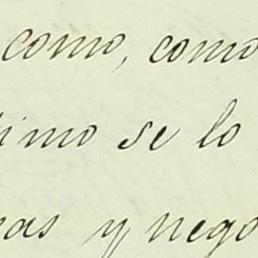 como, como
imo se lo
as y nego